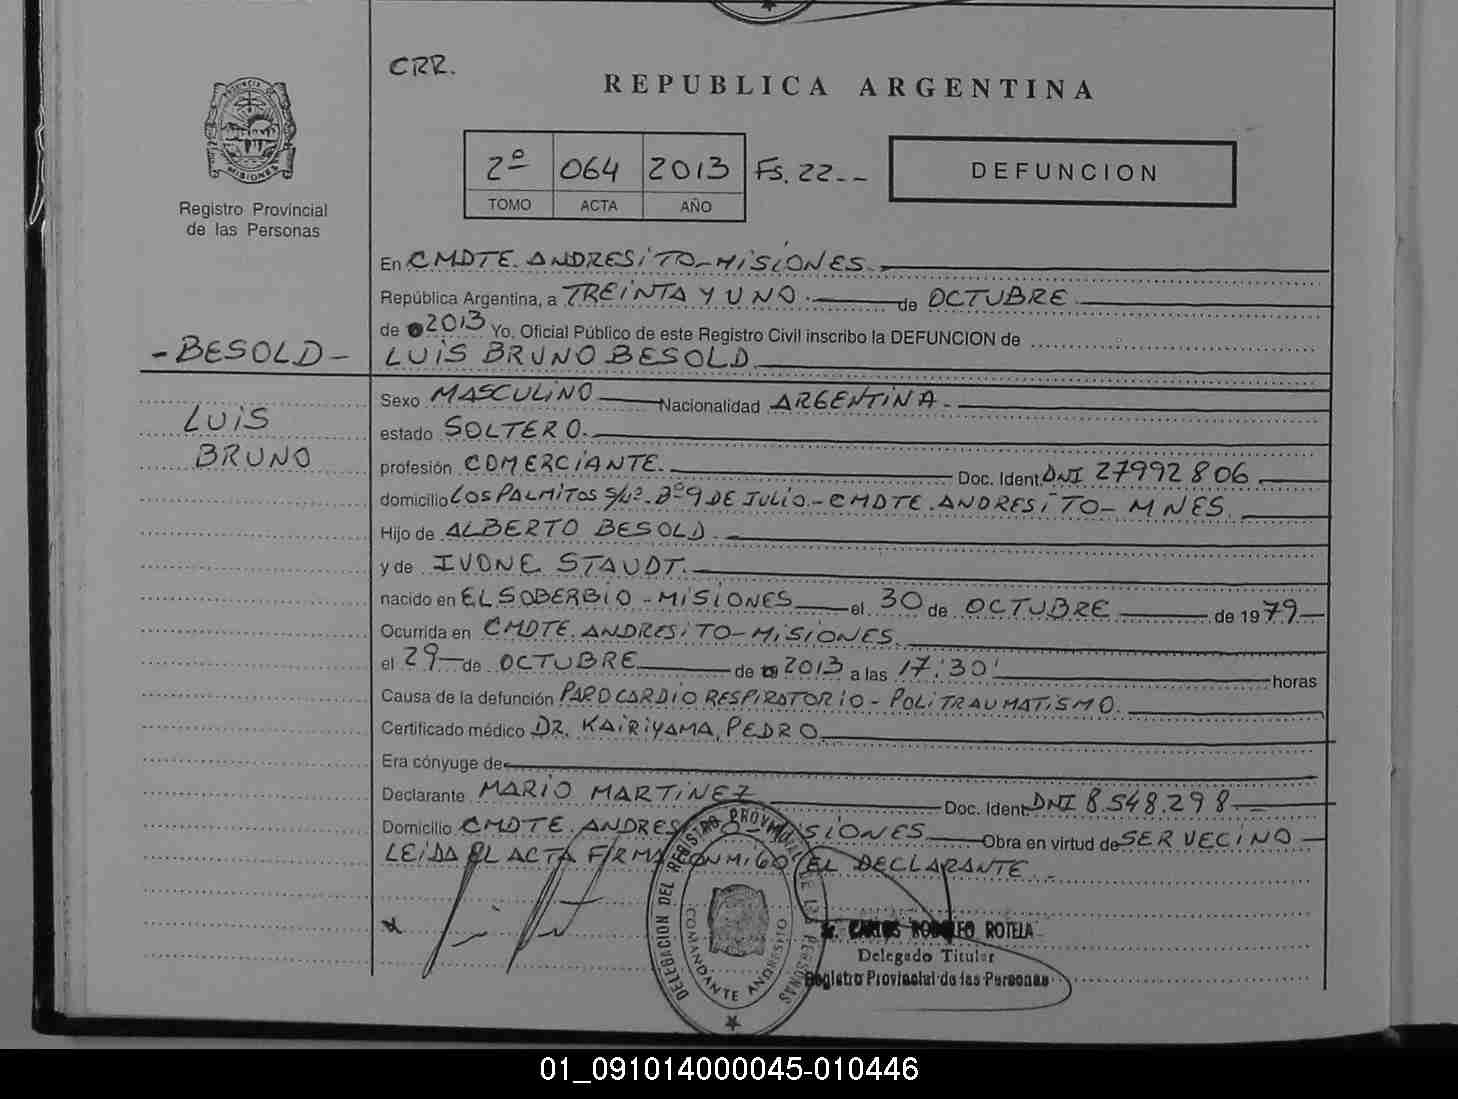 CRR.
REPUBLICA ARGENTINA
PROVINCIA DE
MISIONES
Registro Provincial
de las Personas
2º 064 2013 Fs. 22--
TOMO ACTA AÑO
DEFUNCION
En CMDTE. ANDRESITO-MISIONES.
República Argentina, a TREINTA Y UNO. de OCTUBRE
de 2013 Yo, Oficial Público de este Registro Civil inscribo la DEFUNCION de
-BESOLD- LUIS BRUNO BESOLD
LUIS
BRUNO
Sexo MASCULINO Nacionalidad ARGENTINA.
estado SOLTERO.
profesión COMERCIANTE. Doc. Ident. DNI 27992806
domicilio LOS PALMITOS S/Nº. Bº 9 DE JULIO.- CMDTE. ANDRESITO- MNES.
Hijo de ALBERTO BESOLD.
y de IVONE STAUDT.
nacido en EL SOBERBIO - MISIONES el 30 de OCTUBRE de 1979
Ocurrida en CMDTE. ANDRESITO-MISIONES.
el 29 de OCTUBRE de 2013 a las 17:30' horas
Causa de la defunción PARO CARDIO RESPIRATORIO - POLITRAUMATISMO.
Certificado médico DR. KAIRIYAMA, PEDRO
Era cónyuge de
Declarante MARIO MARTINEZ Doc. Ident. DNI 8.548.298
Domicilio CMDTE. ANDRESITO-MISIONES Obra en virtud de SER VECINO
LEIDA EL ACTA FIRMA CONMIGO EL DECLARANTE.-
DELEGACION DEL REGISTRO PROVINCIAL DE LAS PERSONAS
COMANDANTE ANDRESITO
Sr. CARLOS RODOLFO ROTELA
Delegado Titular
Registro Provincial de las Personas
01_091014000045-010446